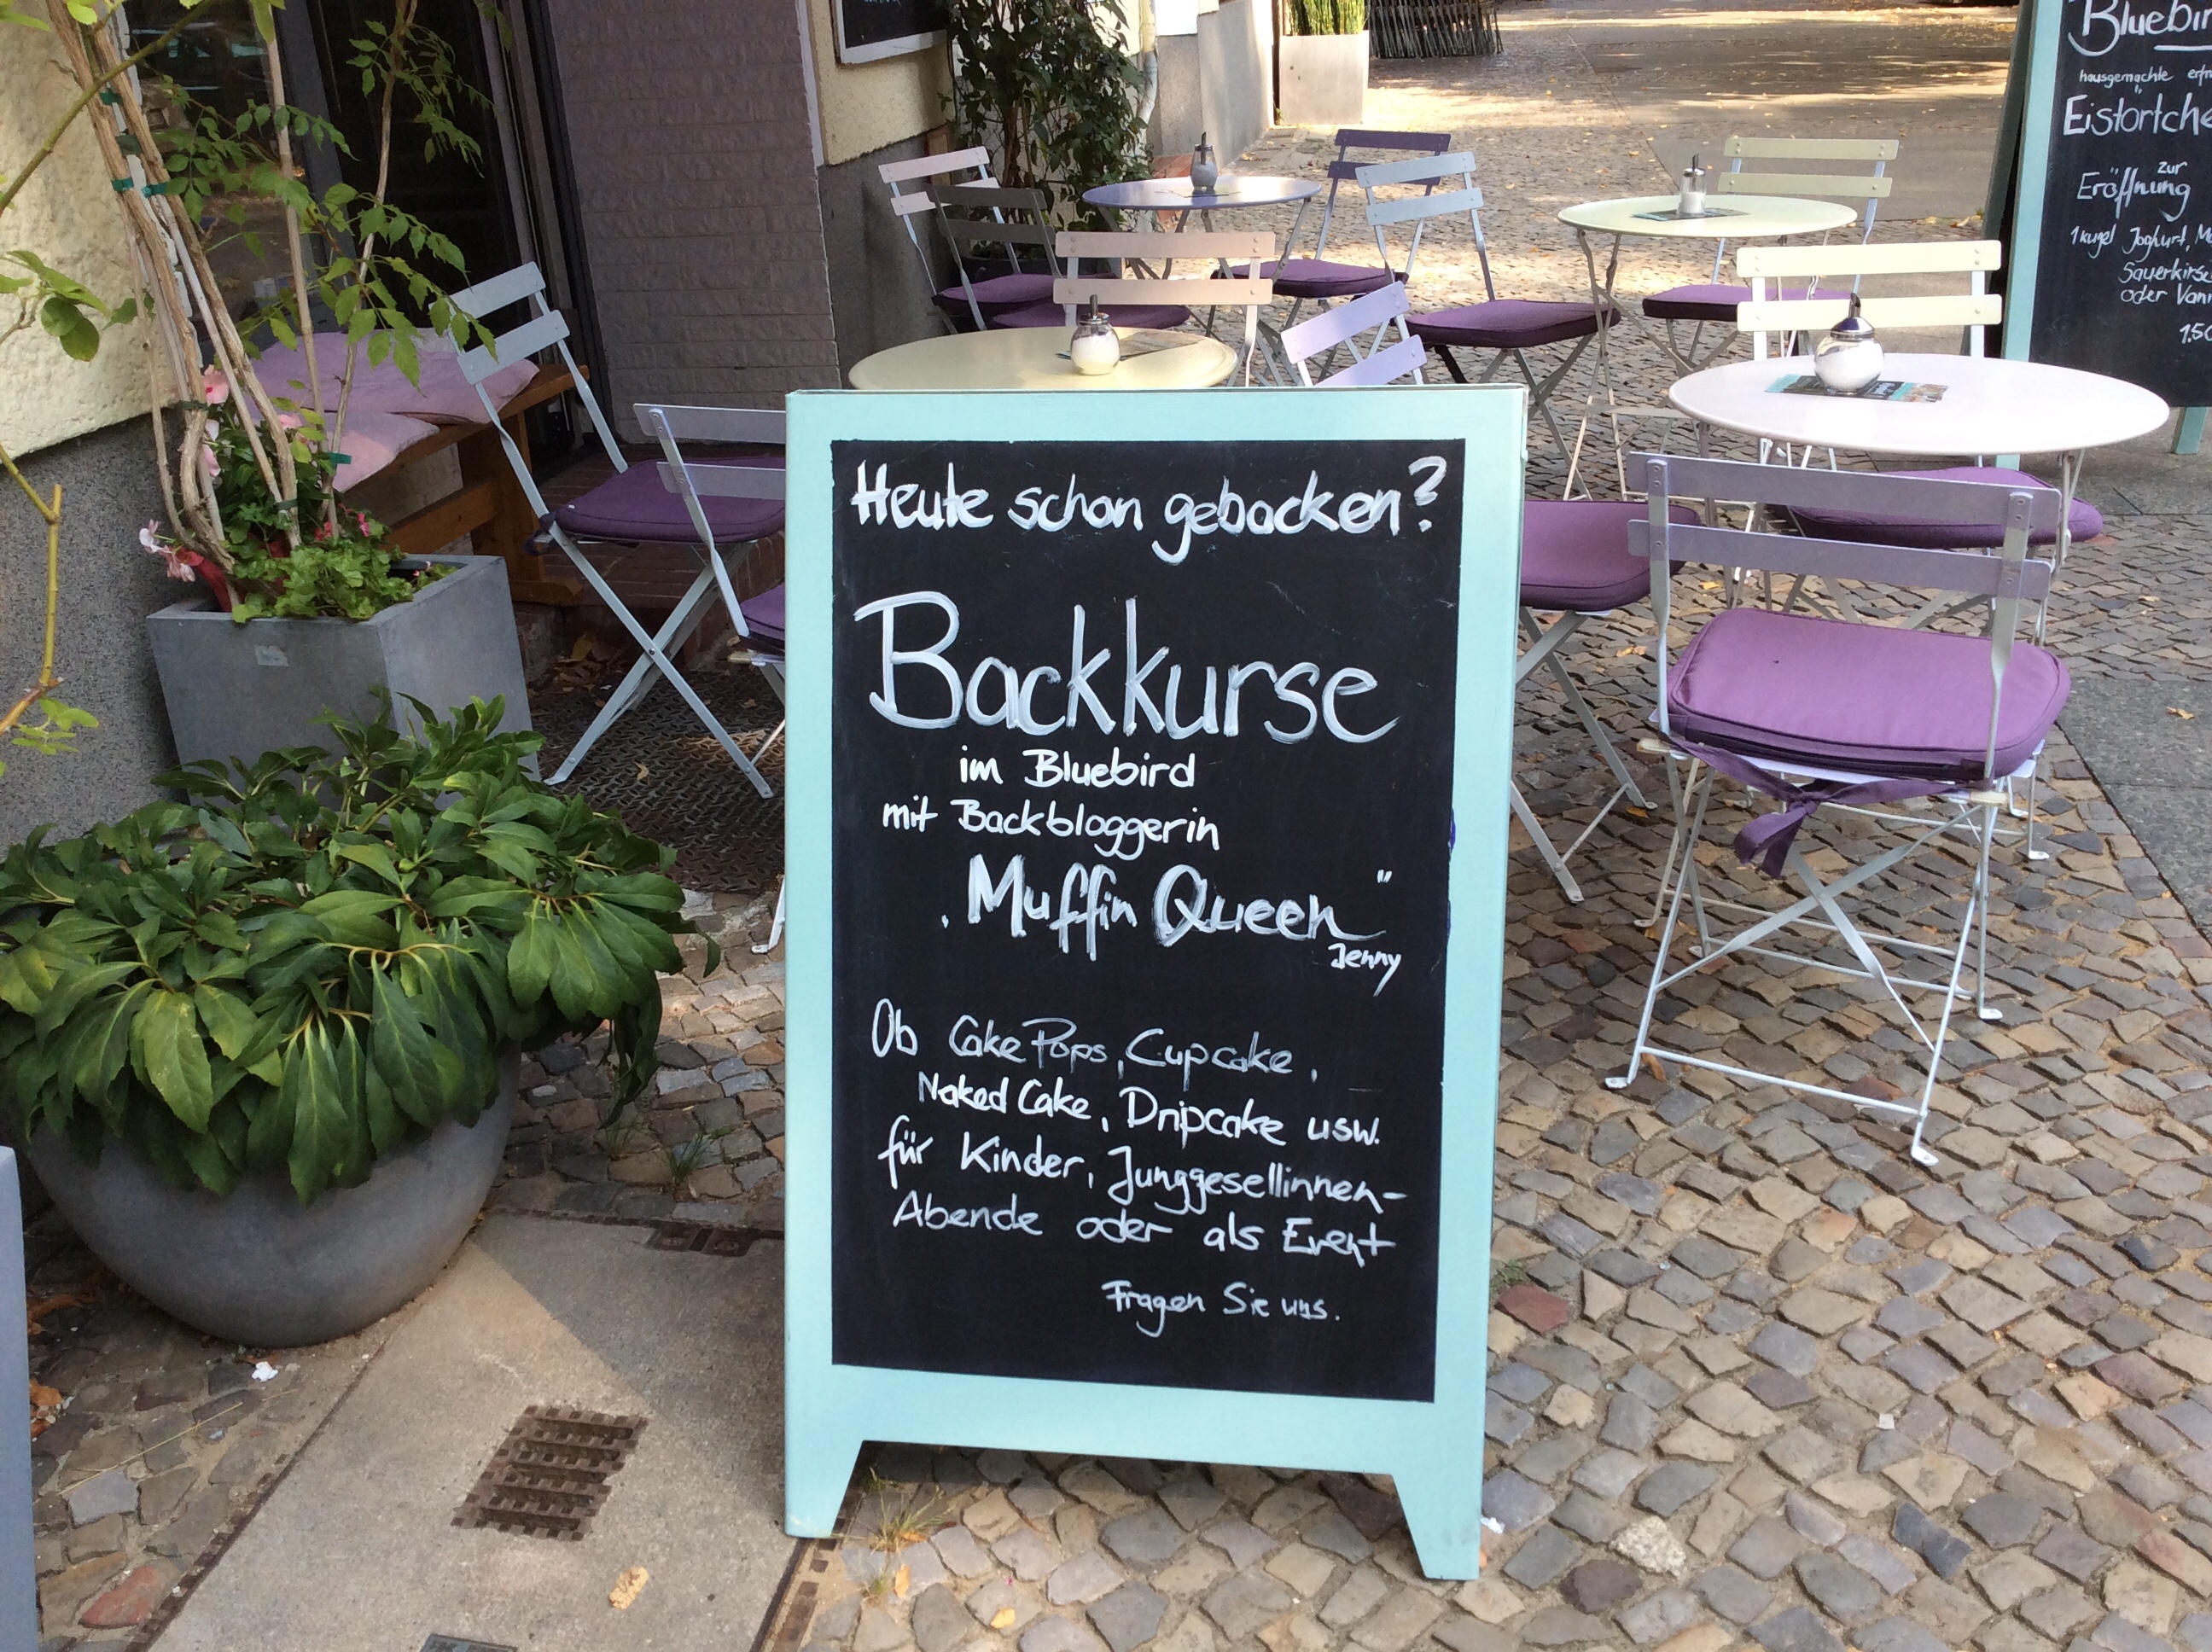 Heute schon gebacken?
Backkurse
im Bluebird
mit Backbloggerin
„Muffin Queen"
Jenny
Ob Cake Pops, Cupcake,
Naked Cake, Dripcake usw.
für Kinder, Junggesellinnen-
Abende oder als Event
Fragen Sie uns.
hausgemachte
zur
Eröffnung
1 Kugel Joghurt,
oder